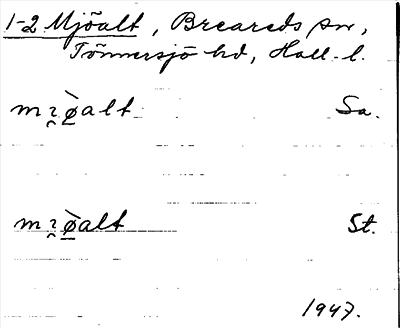 1-2 Mjöalt, Breareds sn,
Tönnersjö hd, Hall. l.
m ı̯ ø̀alt Sa.
m ı̯ ø̀alt St.
1947.